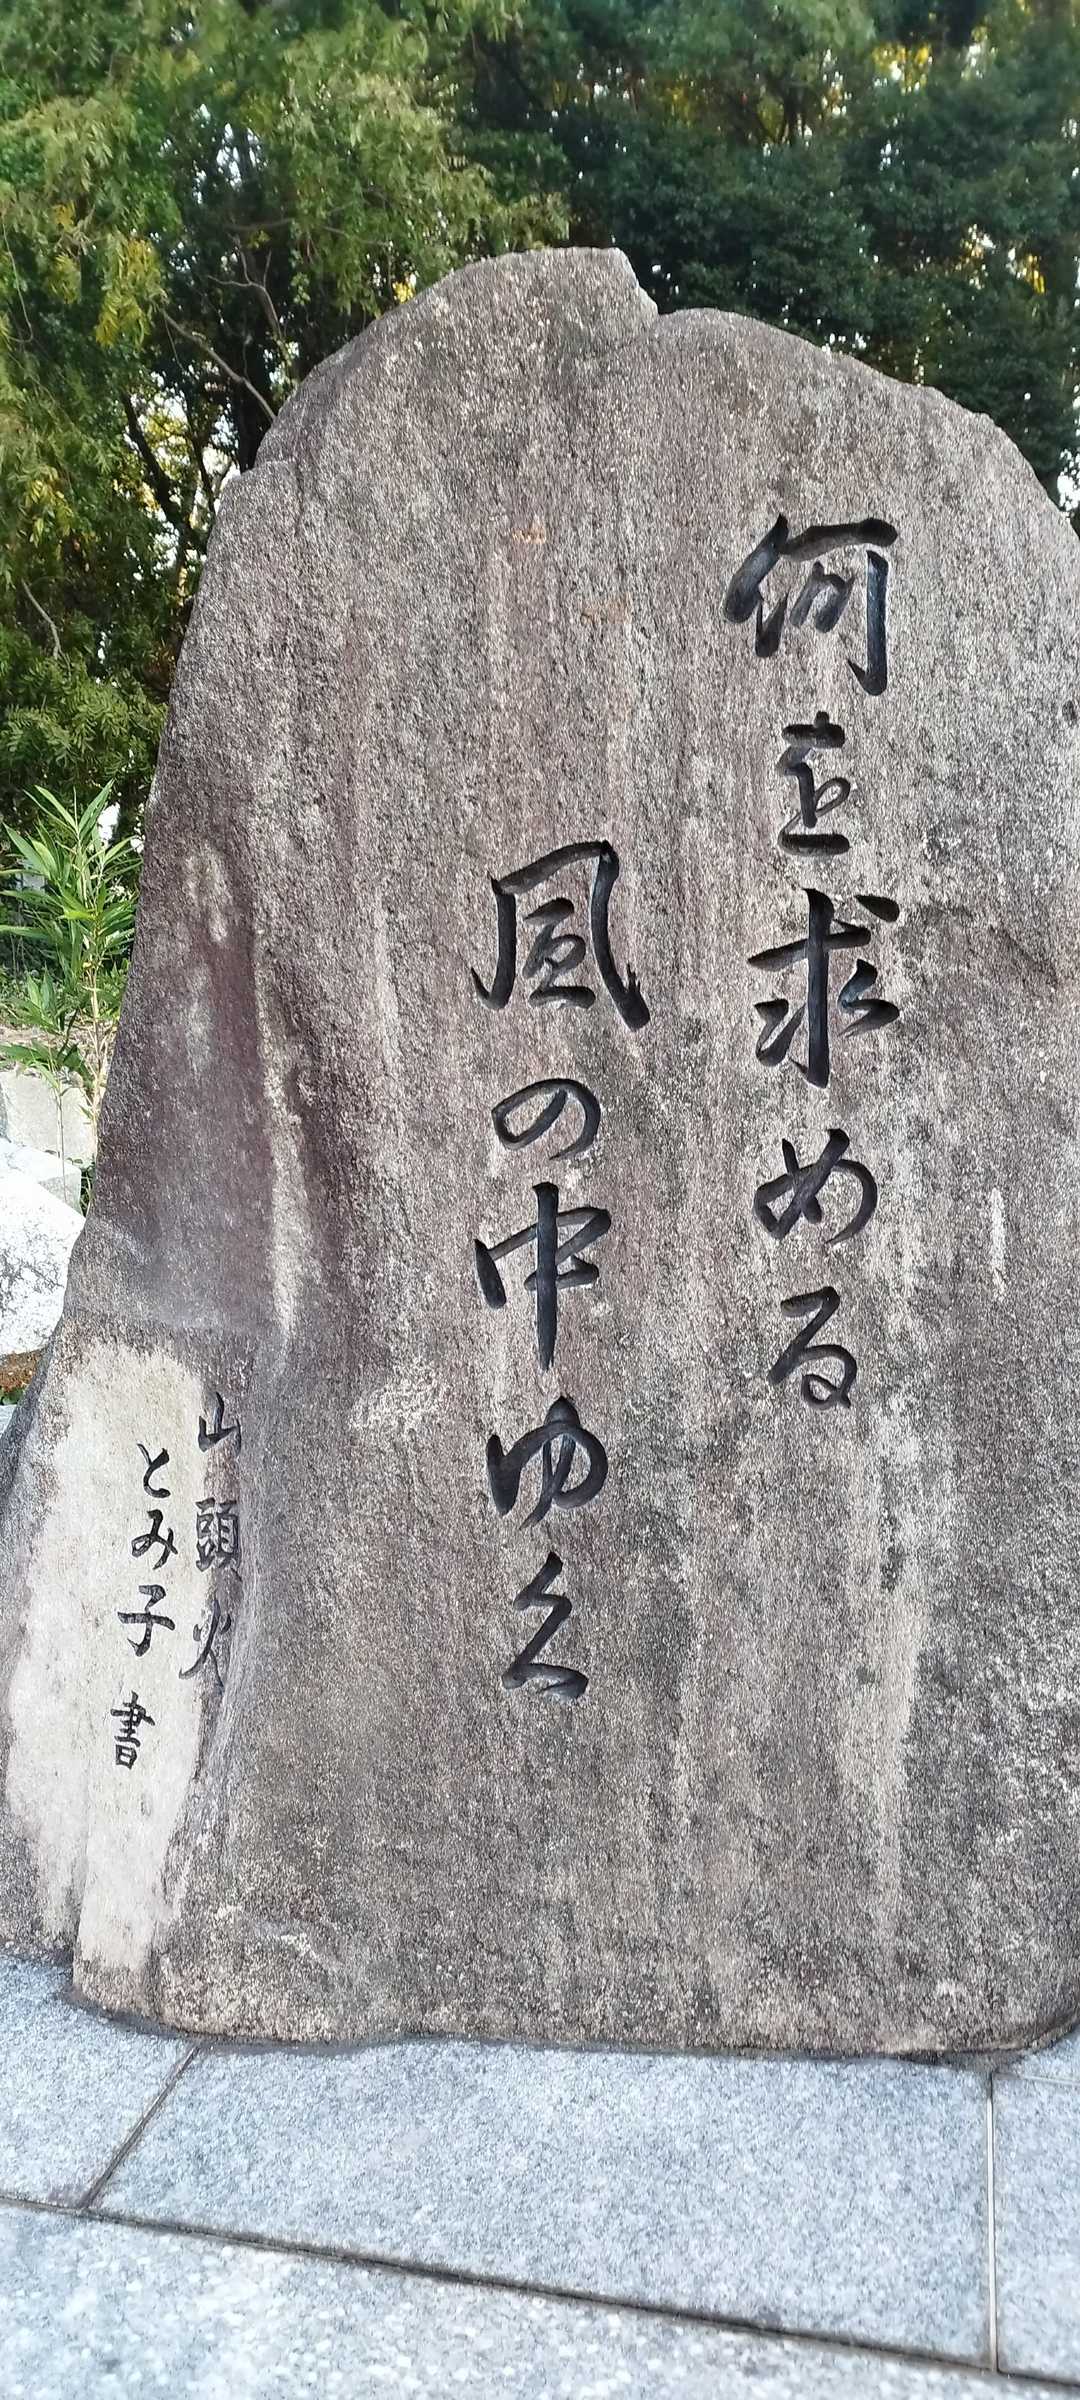 何を求める
風の中ゆく
山頭火
とみ子 書